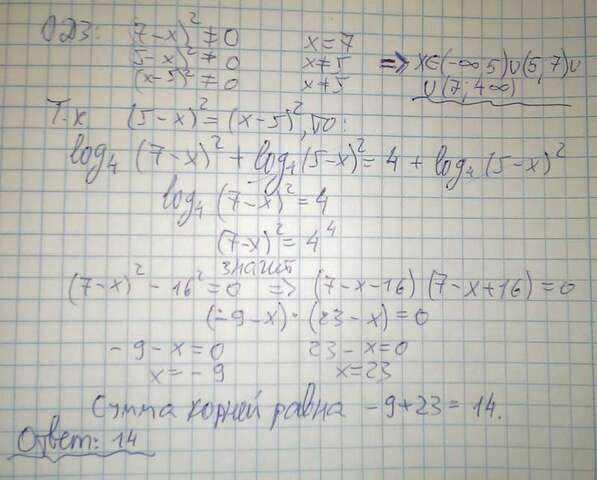 ОДЗ: (7-x)² ≠ 0   x = 7
5-x)² ≠ 0   x ≠ 5   => x∈(-∞, 5)∪(5, 7)∪
(x-5)² ≠ 0   x ≠ 5   ∪(7; +∞)
Т.к (5-x)² = (x-5)², то:
log₄ (7-x)² + log₄(5-x)² = 4 + log₄ (5-x)²
log₄ (7-x)² = 4
(7-x)² = 4⁴
значит
(7-x)² - 16² = 0 => (7-x-16) (7-x+16) = 0
(-9-x) · (23-x) = 0
-9-x = 0   23-x = 0
x = -9   x = 23
Сумма корней равна -9+23 = 14.
Ответ: 14